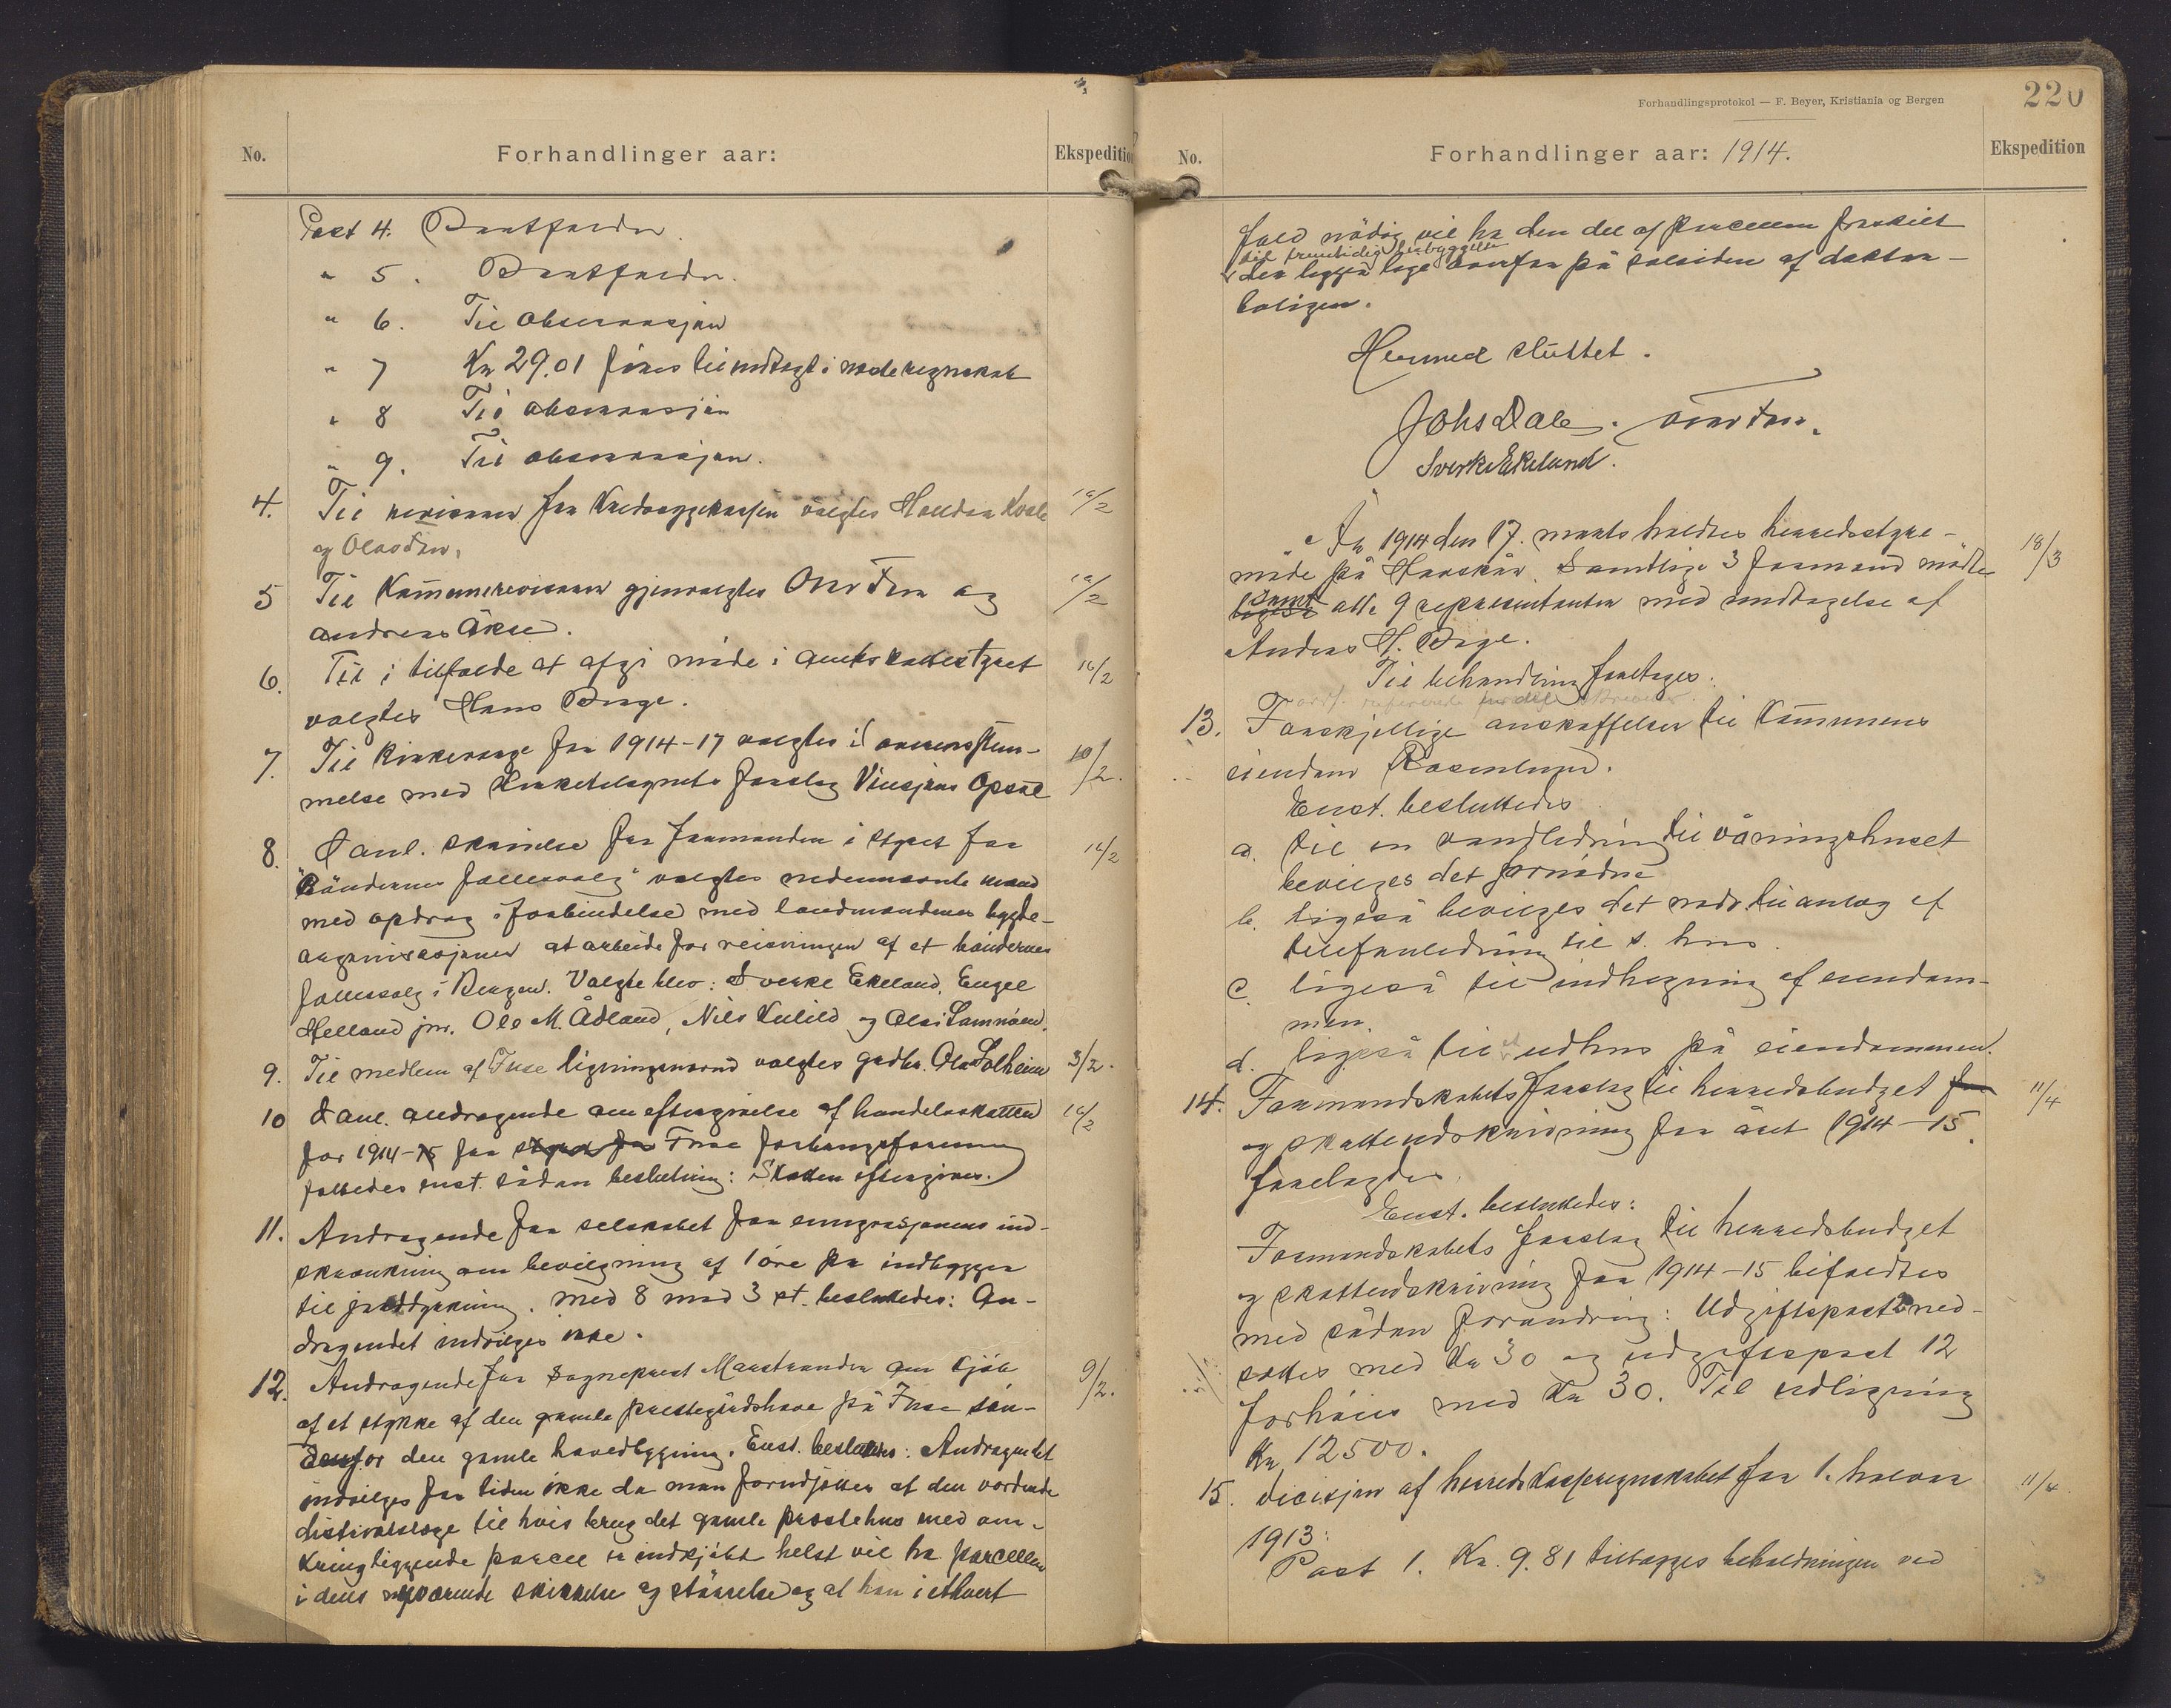 No.
Forhandlinger aar:
Ekspedition
Post 4. Bortfalder.
" 5. Bortfalder.
" 6. Til observasjon
" 7 Kr 29.01 føres til indtægt i næste regnskab
" 8 Til observasjon
" 9. Til observasjon.
4. Til revisorer for Kredsygekassen valgtes Haldor Kvale 16/2
og Olav
5 Til Kommunerevisorer gjenvalgtes Ommund og 16/2
Andreas Åkre.
6. Til i tilfælde at afgi møde i amtsskattestyret 16/2
valgtes Hans Berge.
7. Til kirkeverge for 1914-17 valgtes i overensstem- 10/2.
melse med Kirketilsynets forslag Vinsjans Opsal
8. I anl. skrivelse fra formanden i styret for 16/2
"Bøndernes fællessalg" valgtes nedennævnte mænd
med opdrag i forbindelse med landmændenes bygde-
organisasjoner at arbeide for reisningen af et bøndernes
fællessalg i Bergen. Valgte blev: Sverke Ekeland, Engel
Helland jnr. Ole M. Ådland, Nils Kulild og Olai Samnøen.
9. Til medlem af Fuse ligningsnævnd valgtes gbr. Ola Solheim 3/2.
10 I anl. andragende om eftergivelse af handelsskatten 16/2
for 1914-15 fra styret for Fuse forbrugsforening
fattedes enst. sådan beslutning: Skatten eftergives.
11. Andragende fra selskabet for emigrasjonens ind-
skrænkning om bevilgning af 1 øre pr indbygger
til . Med 8 mod 3 st. besluttedes: An-
dragendet indvilges ikke.
12. Andragende fra Sogneprest Marstrander om kjøb 9/2.
af et stykke af den gamle prestegårdshave på Fuse søn-
denfor den gamle hovedbygning. Enst. besluttedes: Andragendet
indvilges for tiden ikke da man forudsætter at den vordende
distriktslæge til hvis brug det gamle præstehus med om-
kringliggende parcel er indkjøbt helst vil ha parcellen
i dens nuværende skikkelse og størrelse og at han i ethvert
Forhandlingsprotokol — F. Beyer, Kristiania og Bergen
220
No.
Forhandlinger aar: 1914.
Ekspedition
fald nødig vil ha den del af parcellen fraskilt
til fremtidig bebyggelse
der ligger lige ovenfor på solsiden af doktor-
boligen.
Hermed sluttet.
Johs Dale.
Sverke Ekeland.
År 1914 den 17. marts holdtes herredsstyre- 18/3
møde på Havskår. Samtlige 3 formænd mødte
ligeså samt alle 9 repræsentanter med undtagelse af
Andreas H. Berge.
Til behandling foretoges:
Ordf. refererede en del skrivelser.
13. Forskjellige anskaffelser til Kommunens
eiendom Rosenlund.
Enst. besluttedes
a. til en vandledning til våningshuset
bevilges det fornødne
b. ligeså bevilges det nødv. til anlæg af
telefonledning til s. hus.
c. ligeså til indhegning af eiendom-
men.
d. ligeså til et udhus på eiendommen.
14. Formandskabets forslag til herredsbudget for 11/4
og skatteudskrivning for året 1914-15.
forelagdes.
Enst. besluttedes:
Formandskabets forslag til herredsbudget
og skatteudskrivning for 1914-15 bifaldtes
med sådan forandring: Udgiftspost ned-
sættes med Kr 30 og udgiftspost 12
forhøies med Kr 30. Til udligning
Kr 12500.
15. Decisjon af herredskasseregnskabet for 1. halvår 11/4.
1913:
Post 1. Kr. 9.81 tillægges beholdningen ved